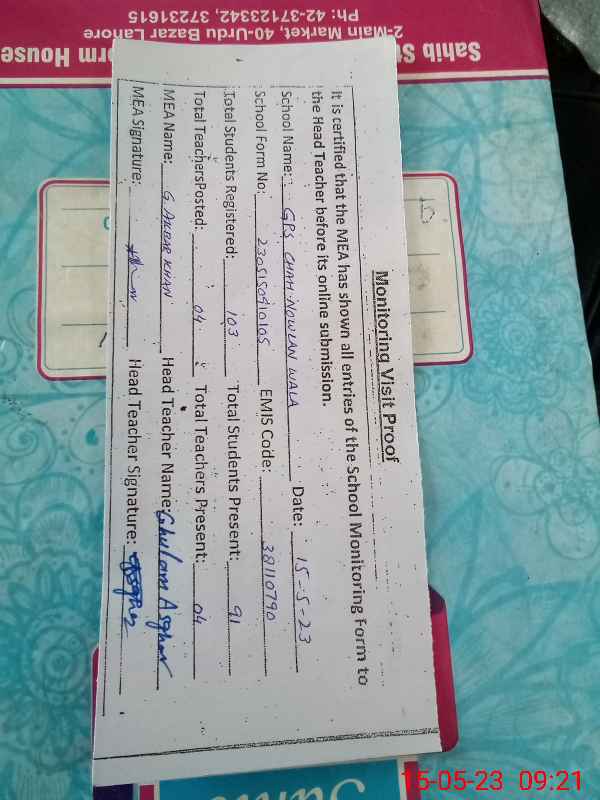 Monitoring Visit Proof
It is certified that the MEA has shown all entries of the School Monitoring Form to
the Head Teacher before its online submission.
School Name: GPS CHAH NOWLAN WALA Date: 15-5-23
School Form No: 230515090105 EMIS Code: 38110790
Total Students Registered: 103 Total Students Present: 91
Total TeachersPosted: 04 Total Teachers Present: 04
MEA Name: G AKBAR KHAN Head Teacher Name: Ghulam Asghar
MEA Signature: Head Teacher Signature:
Sahib St
orm House
2-Main Market, 40-Urdu Bazar Lahore
Ph: 42-37123342, 37231615
15-05-23 09:21